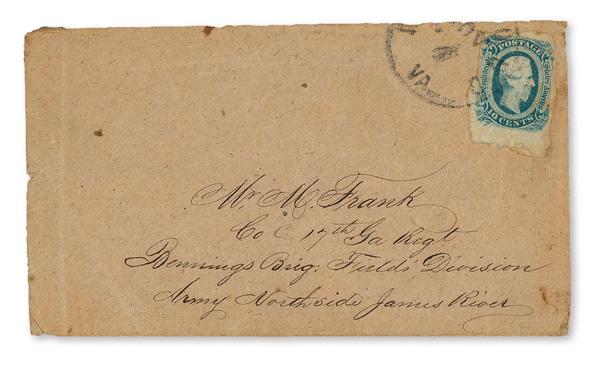 VA
POSTAGE
10 CENTS
Mr. M. Frank
Co C. 17th Ga Regt
Bennings Brig: Field's Division
Army Northside James River